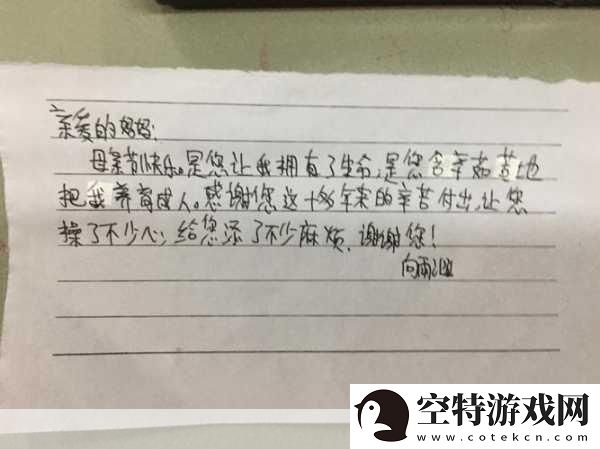 亲爱的妈妈:
母亲节快乐。是您让我拥有了生命,是您含辛茹苦地
把我养育成人。感谢您这十多年来的辛苦付出,让您
操了不少心,给您添了不少麻烦,谢谢您!
向雨
空特游戏网
www.cotekcn.com